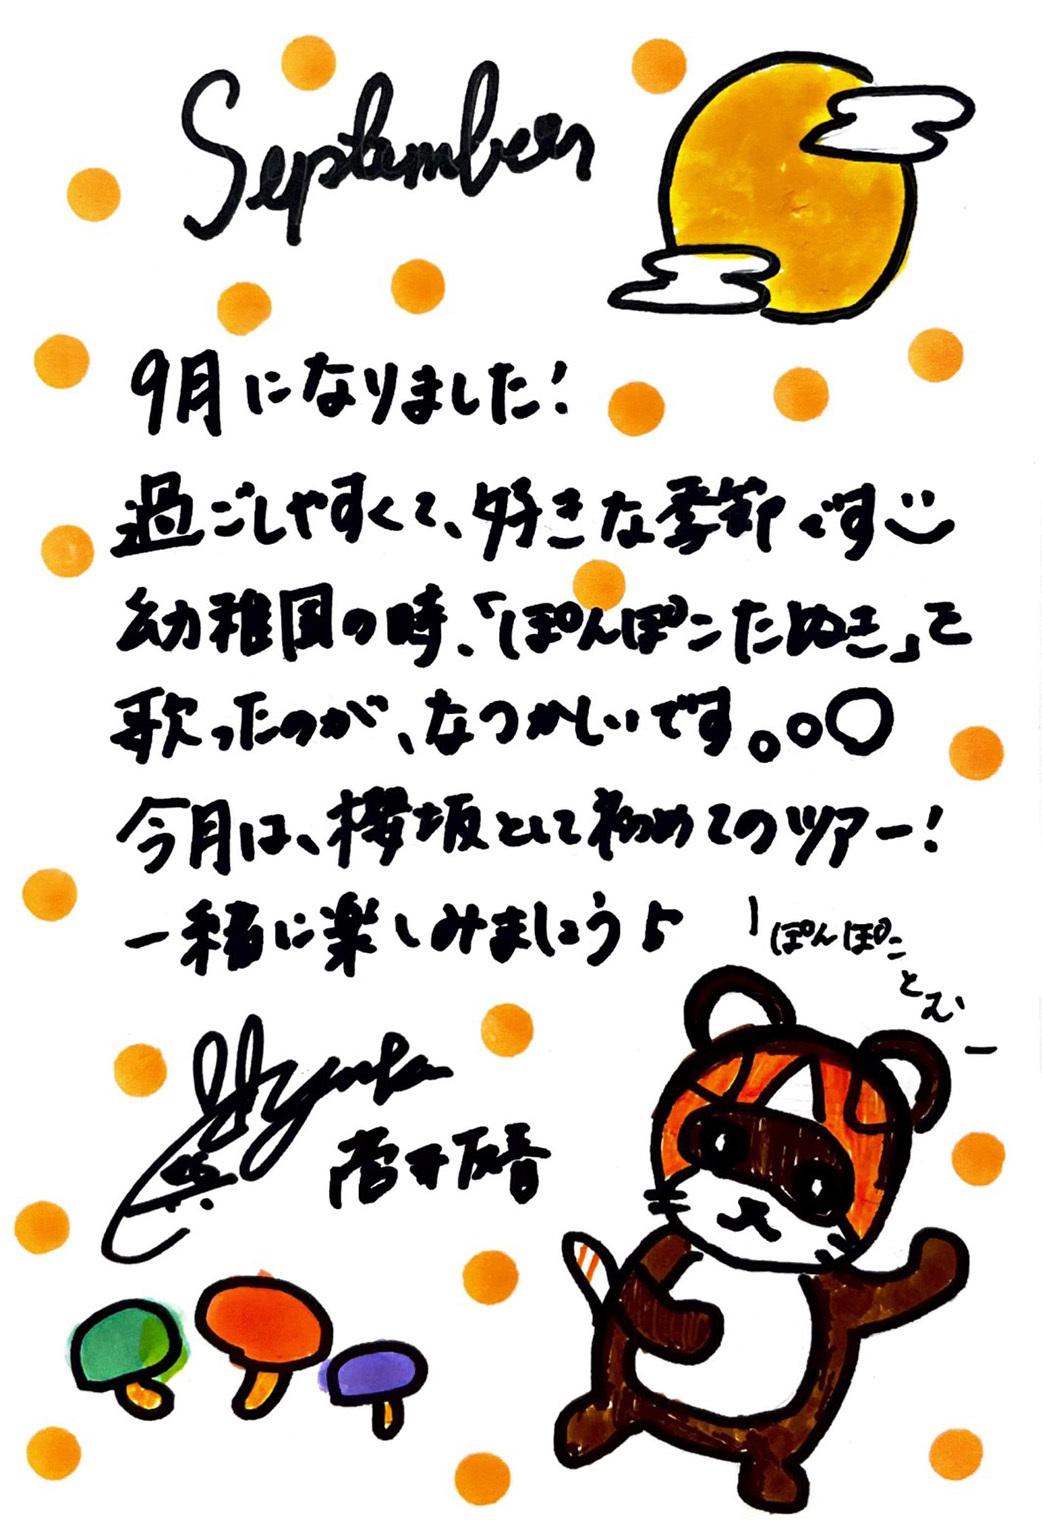 September
9月になりました!
過ごしやすくて、好きな季節です
幼稚園の時、「ぽんぽこたぬき」で
歌ったのが、なつかしいです。。○
今月は、櫻坂として初めてのツアー!
一緒に楽しみましょう♪
ぽんぽこ
とむ
Yuuka
菅井友香